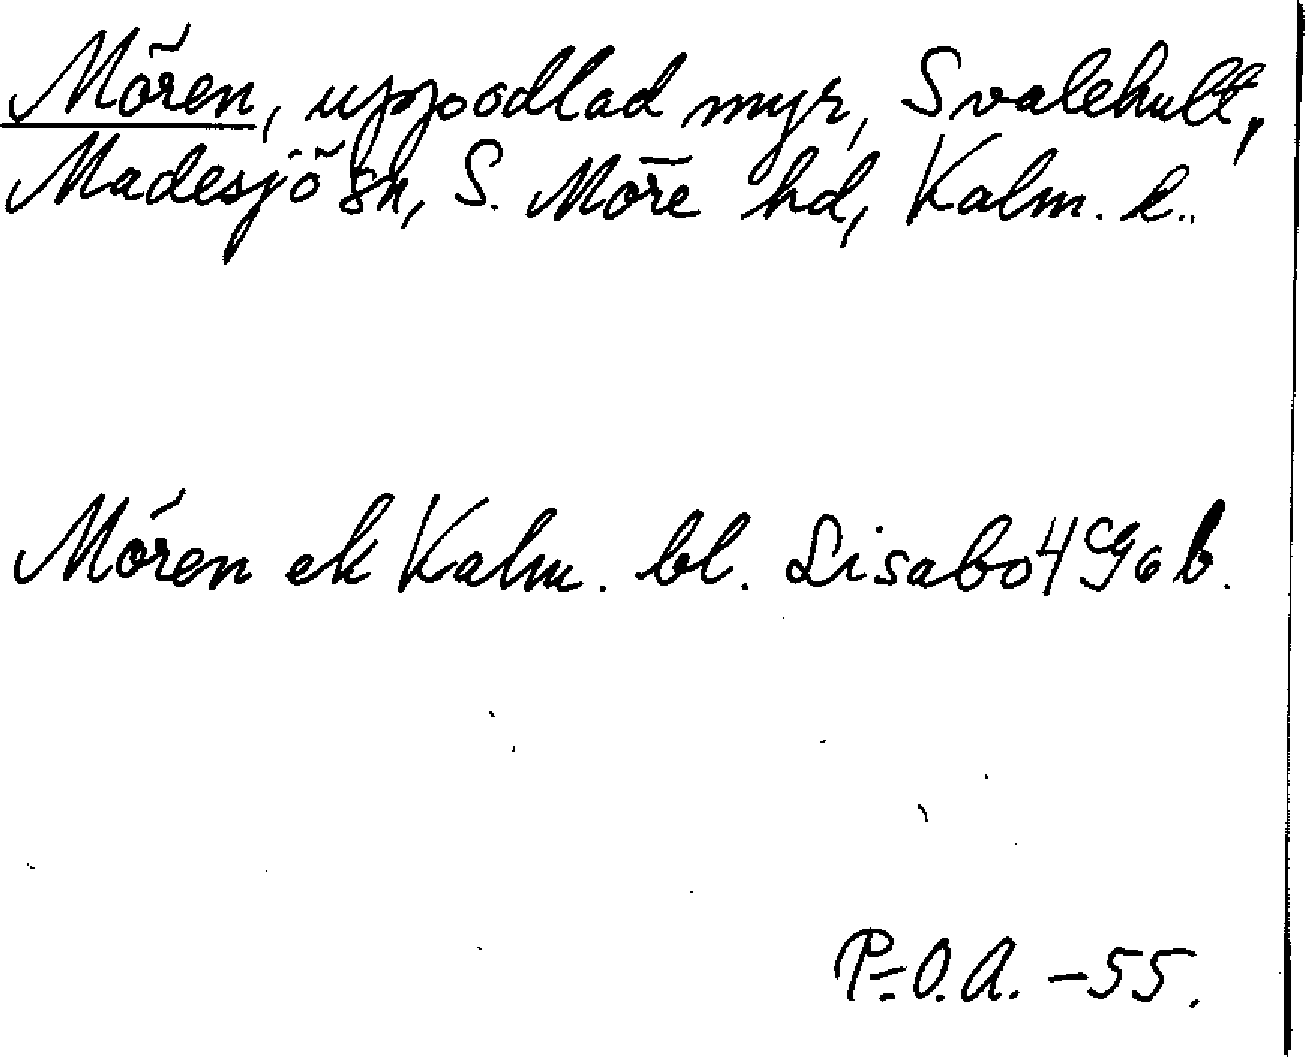 Mören, uppodlad myr, Svalehult,
Madesjö sn, S. Möre hd, Kalm. l.
Mören ek Kalm. bl. Lisabo 4 9c b.
P-O.A. -55.